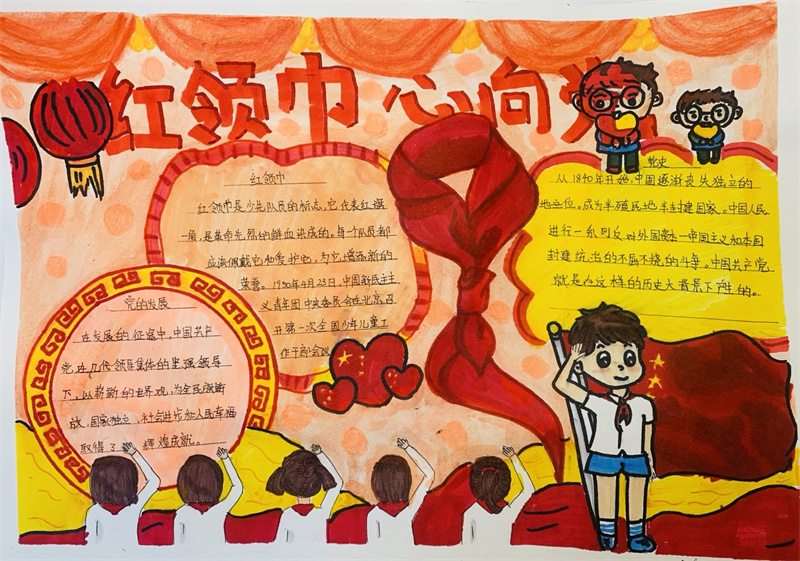 红领巾 心向党
红领巾
红领巾是少先队员的标志，它代表红旗
一角，是革命先烈的鲜血染成的。每个队员都
应该佩戴它和爱护它，为它增添新的
荣誉。1950年4月23日，中国新民主主
义青年团中央委员会在北京召
开第一次全国少年儿童工
作干部会议
党史
从1840年开始，中国逐渐丧失独立的
地位。成为半殖民地半封建国家。中国人民
进行一系列反对外国帝国主义和本国
封建统治的不屈不挠的斗争。中国共产党
就是在这样的历史大背景下产生的。
党的发展
在发展的征途中，中国共产
党在几代领导集体的坚强领导
下，以崭新的世界观，为全民族解
放、国家独立、社会进步和人民幸福
取得了 辉煌成就。